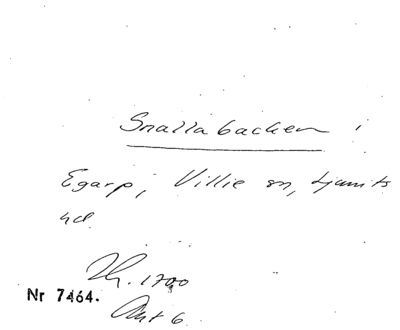 Snallabacken i
Egarp, Villie sn, Ljunits
hd
Nr 7464.